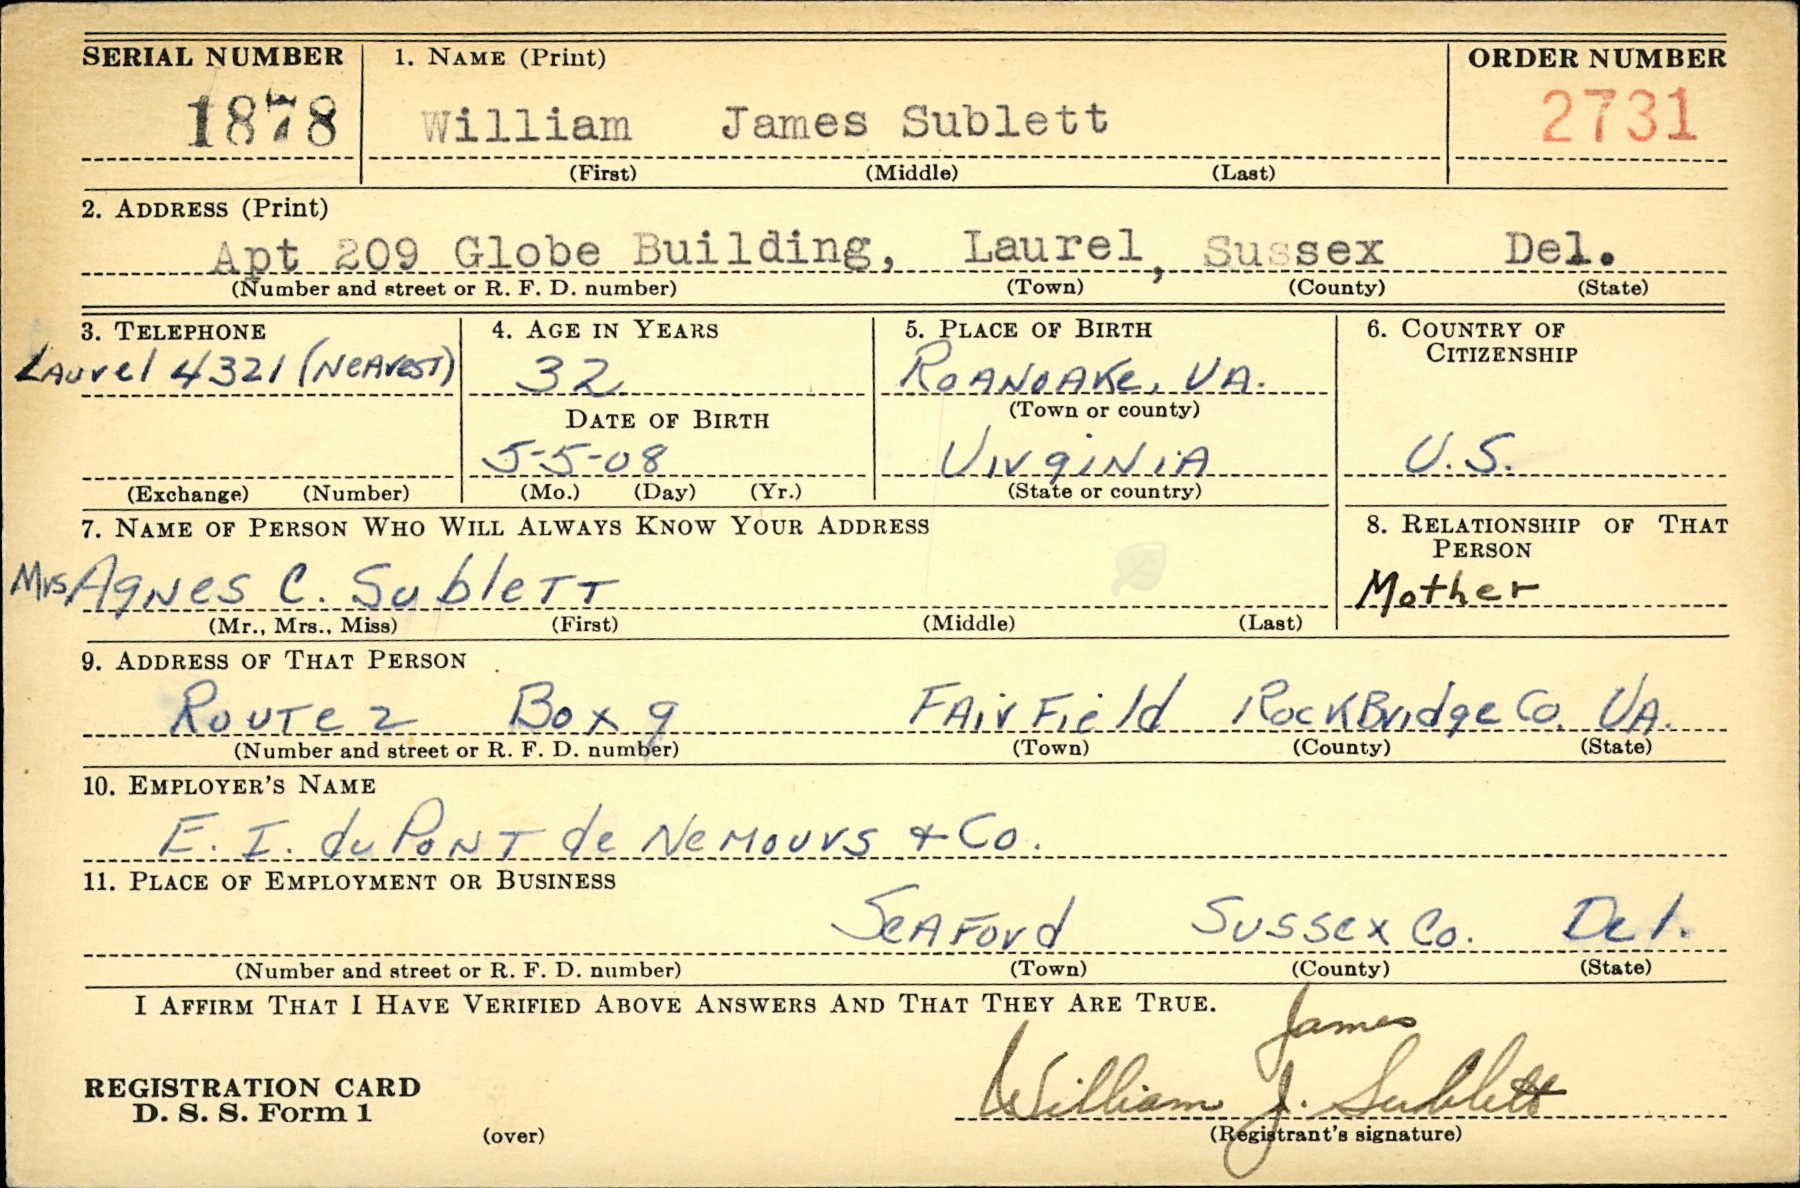 SERIAL NUMBER 1. NAME (Print) ORDER NUMBER
1878 William James Sublett 2731
(First) (Middle) (Last)
2. ADDRESS (Print)
Apt 209 Globe Building, Laurel, Sussex Del.
(Number and street or R. F. D. number) (Town) (County) (State)
3. TELEPHONE 4. AGE IN YEARS 5. PLACE OF BIRTH 6. COUNTRY OF CITIZENSHIP
Laurel 4321 (Nearest) 32 Roanoake, VA.
DATE OF BIRTH (Town or county)
5-5-08 Virginia U.S.
(Exchange) (Number) (Mo.) (Day) (Yr.) (State or country)
7. NAME OF PERSON WHO WILL ALWAYS KNOW YOUR ADDRESS 8. RELATIONSHIP OF THAT PERSON
Mrs Agnes C. Sublett Mother
(Mr., Mrs., Miss) (First) (Middle) (Last)
9. ADDRESS OF THAT PERSON
Route 2 Box 9 Fairfield RockBridge Co. VA.
(Number and street or R. F. D. number) (Town) (County) (State)
10. EMPLOYER'S NAME
E. I. du Pont de Nemours & Co.
11. PLACE OF EMPLOYMENT OR BUSINESS
Seaford Sussex Co. Del.
(Number and street or R. F. D. number) (Town) (County) (State)
I AFFIRM THAT I HAVE VERIFIED ABOVE ANSWERS AND THAT THEY ARE TRUE.
James
REGISTRATION CARD William J. Sublett
D. S. S. Form 1
(over) (Registrant's signature)